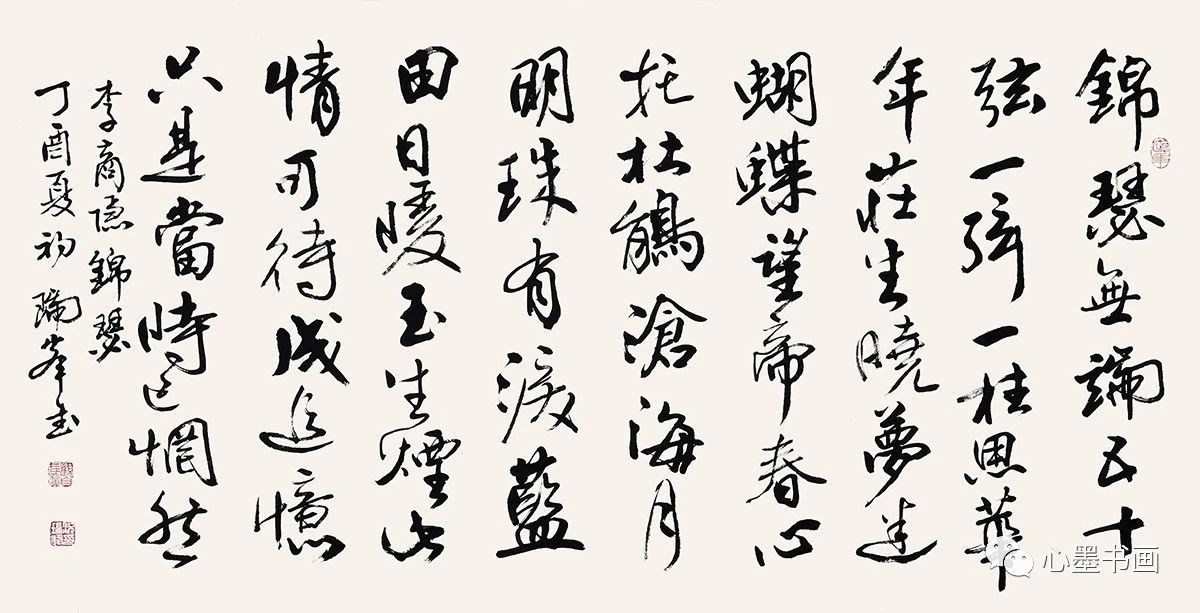 錦瑟無端五十
弦一弦一柱思華
年莊生曉夢迷
蝴蝶望帝春心
托杜鵑滄海月
明珠有淚藍
田日暖玉生煙此
情可待成追憶
只是當時已惘然
李商隱錦瑟
丁酉夏初瑞峯书
心墨书画